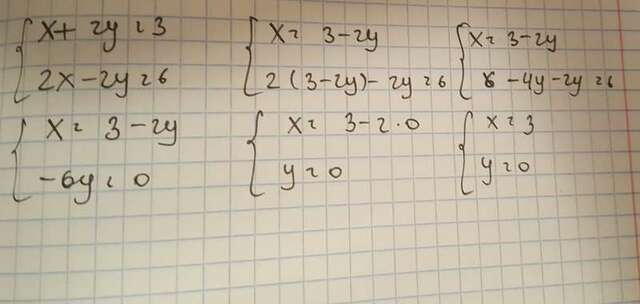 x + 2y = 3
2x - 2y = 6
x = 3 - 2y
2(3 - 2y) - 2y = 6
x = 3 - 2y
6 - 4y - 2y = 6
x = 3 - 2y
-6y = 0
x = 3 - 2 · 0
y = 0
x = 3
y = 0